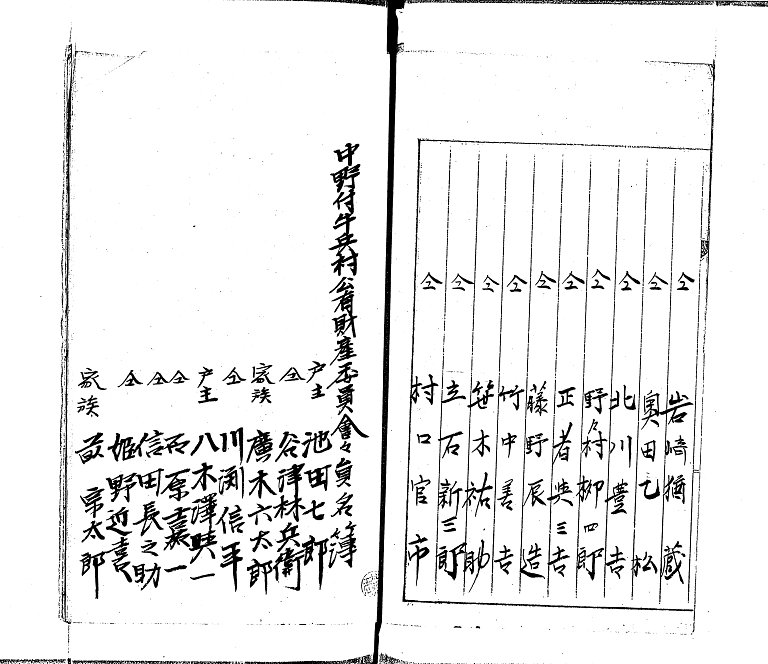 仝 岩崎猶蔵
仝 奥田乙松
仝 北川豊吉
仝 野々村柳四郎
仝 正者與三吉
仝 藤野辰造
仝 竹中善吉
仝 笹木祐助
仝 立石新三郎
仝 村口官市
中野付牛兵村公有財産委員會々員名簿
戸主 池田七郎
仝 谷津林兵衛
家族 廣木六太郎
仝 川渕信平
戸主 八木澤與一
仝 石原嘉一
仝 信田長之助
仝 姫野近喜
家族 宗太郎